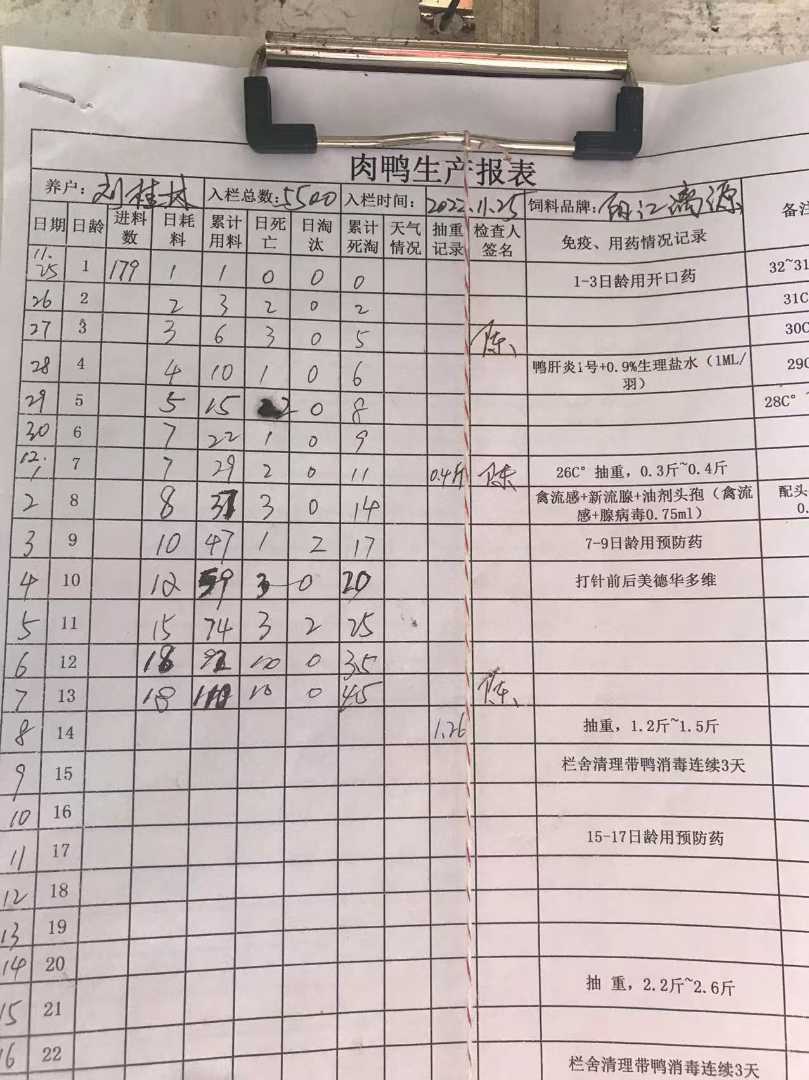 肉鸭生产报表
养户: 刘桂林 入栏总数: 5500 入栏时间: 2022.11.25 饲料品牌: 江漓源
日期 日龄 进料数 日耗料 累计用料 日死亡 日淘汰 累计死淘 天气情况 抽重记录 检查人签名 免疫、用药情况记录 备注
11.25 1 179 1 1 0 0 0 1-3日龄用开口药 32~31
26 2 2 3 2 0 2 31C
27 3 3 6 3 0 5 陈 30C
28 4 4 10 1 0 6 鸭肝炎1号+0.9%生理盐水（1ML/羽） 29C
29 5 5 15 2 0 8 28C°~
30 6 7 22 1 0 9
12.1 7 7 29 2 0 11 0.4斤 陈 26C° 抽重，0.3斤~0.4斤
2 8 8 37 3 0 14 禽流感+新流腺+油剂头孢（禽流感+腺病毒0.75ml） 配头 0.
3 9 10 47 1 2 17 7-9日龄用预防药
4 10 12 59 3 0 20 打针前后美德华多维
5 11 15 74 3 2 25
6 12 18 92 10 0 35
7 13 18 110 10 0 45 陈
8 14 1.26 抽重，1.2斤~1.5斤
9 15 栏舍清理带鸭消毒连续3天
10 16
11 17 15-17日龄用预防药
12 18
13 19
14 20
15 21 抽 重，2.2斤~2.6斤
16 22
栏舍清理带鸭消毒连续3天